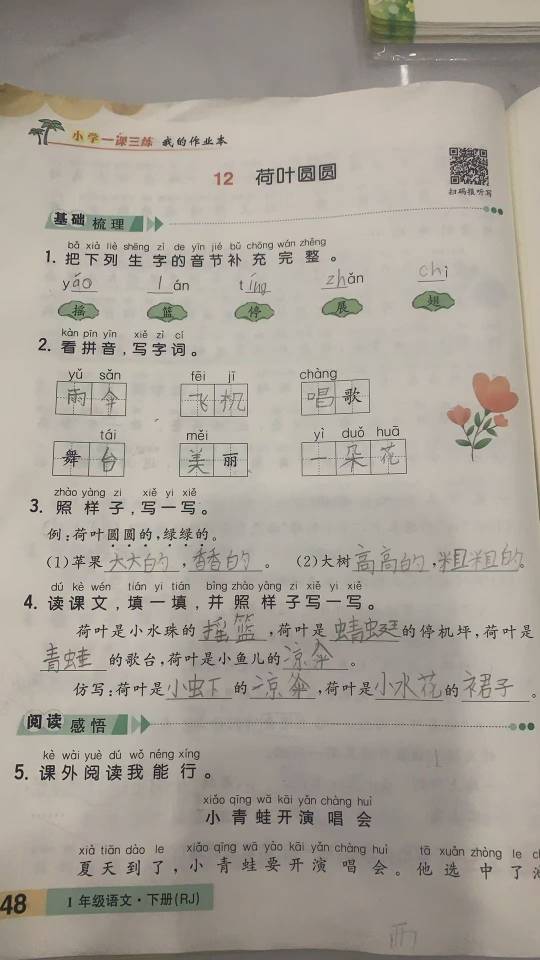 小学一课三练 我的作业本
12 荷叶圆圆
扫码报听写
基础 梳理
bǎ xià liè shēng zì de yīn jié bǔ chōng wán zhěng
1. 把下列生字的音节补充完整。
yáo lán tíng zhǎn chì
摇 篮 停 展 翅
kàn pīn yīn xiě zì cí
2. 看拼音,写字词。
yǔ sǎn fēi jī chàng
雨伞 飞机 唱歌
tái měi yì duǒ huā
舞台 美丽 一朵花
zhào yàng zi xiě yi xiě
3. 照样子,写一写。
例:荷叶圆圆的,绿绿的。
(1)苹果大大的,香香的。 (2)大树高高的,粗粗的。
dú kè wén tián yi tián bìng zhào yàng zi xiě yi xiě
4. 读课文,填一填,并照样子写一写。
荷叶是小水珠的摇篮,荷叶是蜻蜓的停机坪,荷叶是
青蛙的歌台,荷叶是小鱼儿的凉伞。
仿写:荷叶是小虫下的凉伞,荷叶是小水花的裙子。
阅读 感悟
kè wài yuè dú wǒ néng xíng
5. 课外阅读我能行。
xiǎo qīng wā kāi yǎn chàng huì
小青蛙开演唱会
xià tiān dào le xiǎo qīng wā yào kāi yǎn chàng huì tā xuǎn zhòng le
夏天到了,小青蛙要开演唱会。他选中了
48 1年级语文·下册(RJ)